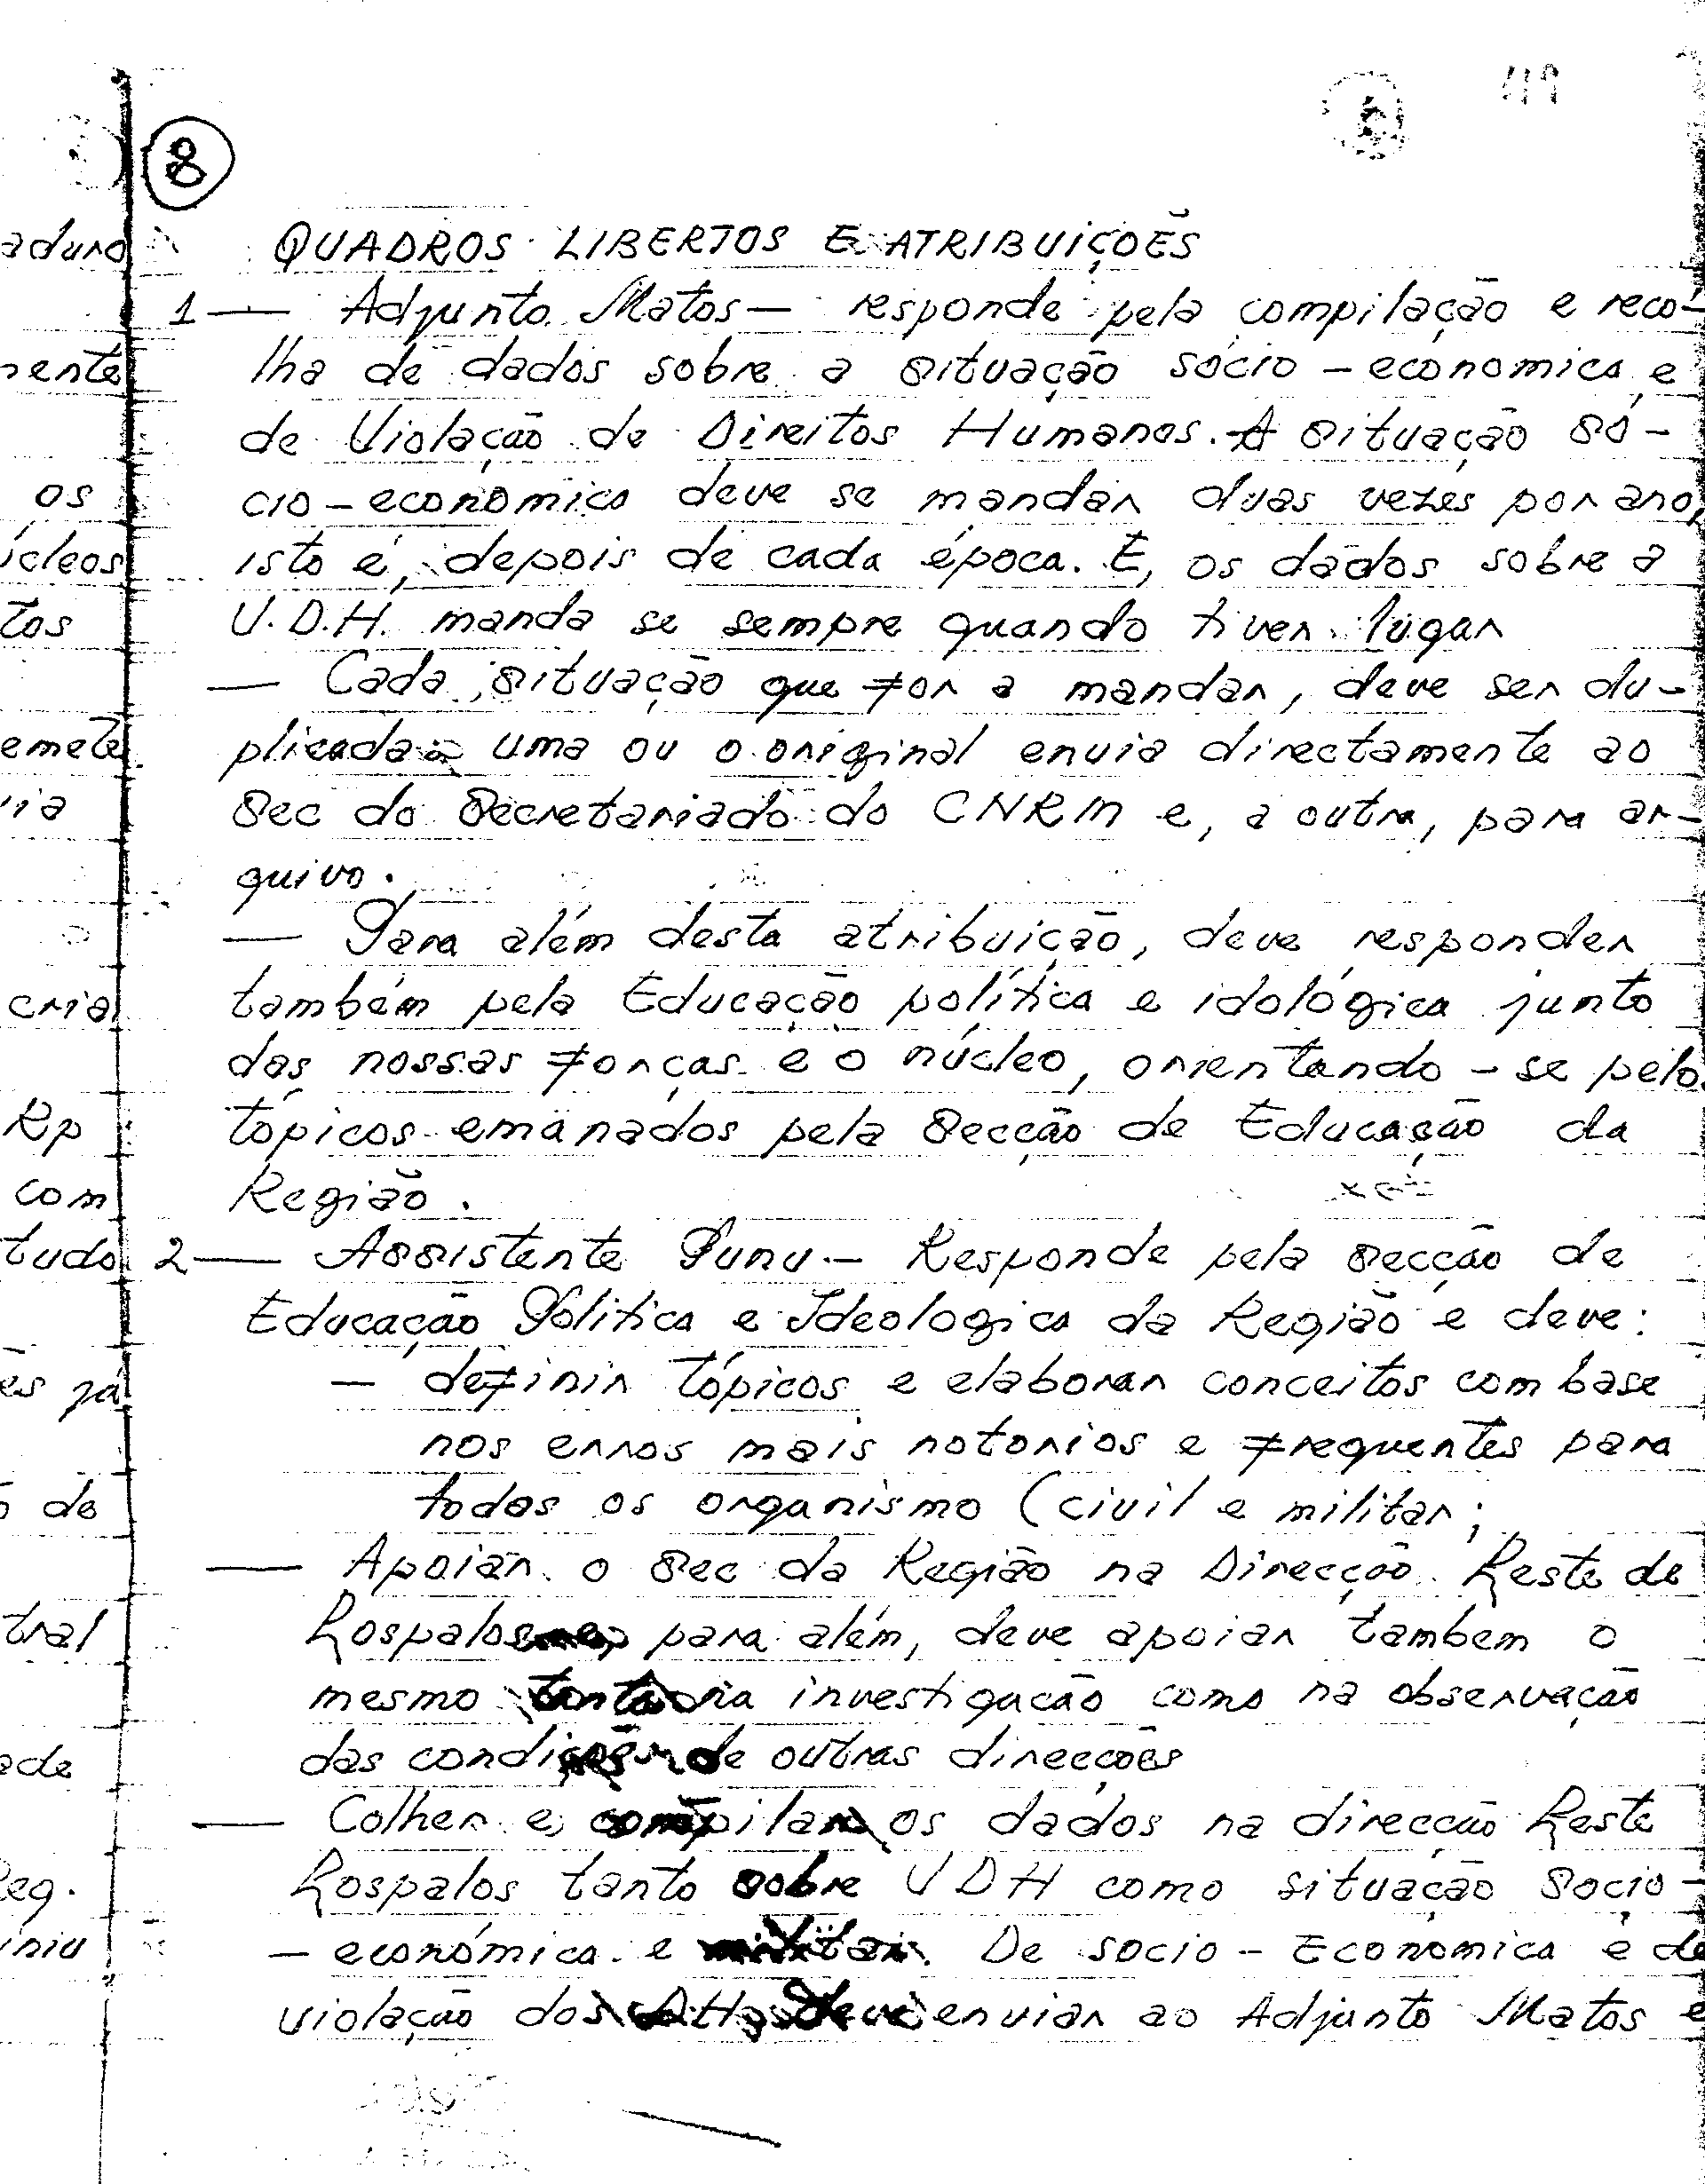 119
8
QUADROS LIBERTOS E ATRIBUIÇOES
1 — Adjunto Matos — responde pela compilação e reco-
lha de dados sobre a situação sócio - economica e
de Violação de Direitos Humanos. A situação só-
cio - economica deve se mandar duas vezes por ano,
isto é, depois de cada época. E, os dados sobre a
V.D.H. manda se sempre quando tiver lugar
— Cada situação que for a mandar, deve ser du-
plicada uma ou o original envia directamente ao
Sec do Secretariado do CNRM e, a outra, para ar-
quivo.
— Para além desta atribuição, deve responder
também pela Educação política e idológica junto
das nossas forças e o núcleo, orientando - se pelo
tópicos emanados pela Secção de Educação da
Região.
2 — Assistente Punu. — Responde pela Secção de
Educação Politica e Ideologica da Região e deve:
— definir tópicos e elaborar conceitos com base
nos erros mais notorios e frequentes para
todos os organismo (civil e militar;
— Apoiar o Sec da Região na Direcção Leste de
Lospalos para além, deve apoiar tambem o
mesmo na investigação como na observação
das condições de outras direcções
— Colher e compilar os dados na direcção Leste
Lospalos tanto sobre VDH como situação Socio -
- económica e militar. De socio - Economica e de
violação dos deve enviar ao Adjunto Matos e
aduro
mente
os
úcleos
tos
emete
via
cria
Rp
com
tudo
es já
de
tral
ade
Reg.